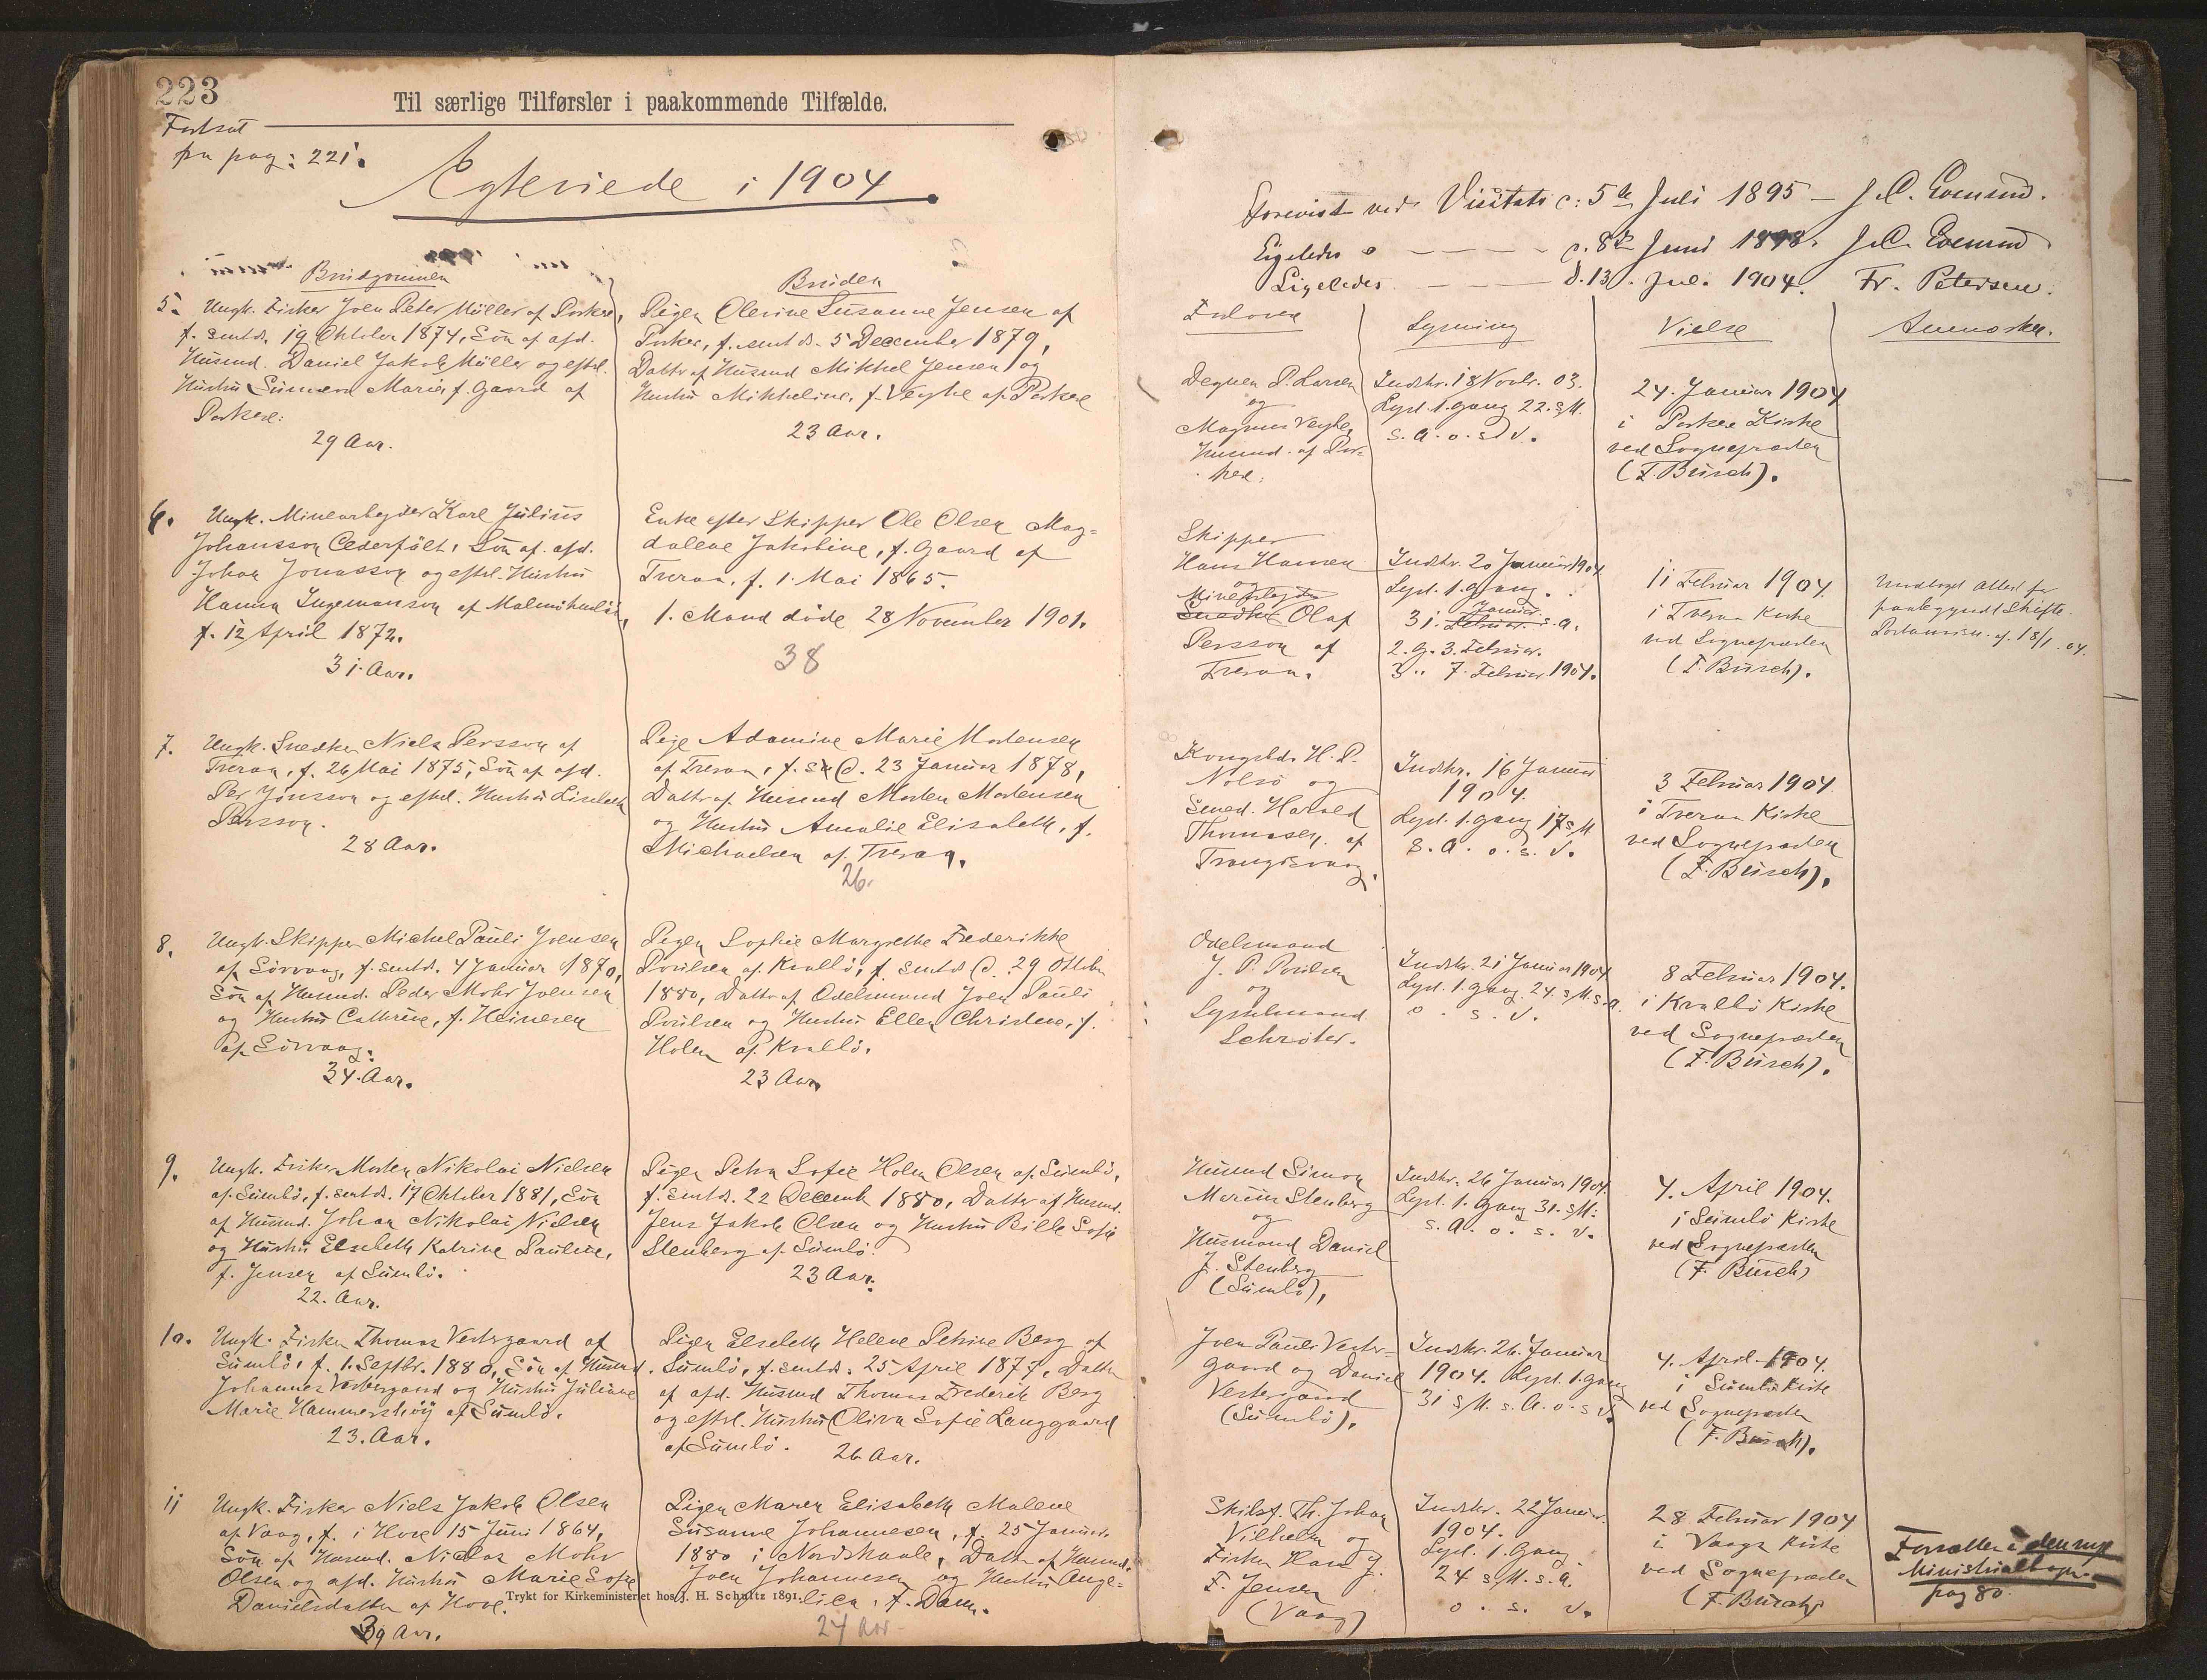 223
Til særlige Tilførsler i paakommende Tilfælde.
Fortsat
fra pag: 221.
Egteviede i 1904.
Brudgommen
5. Ungk. Fisker Joen Peter Müller af Porkere,
f. smtds. 19 Oktober 1874, Søn af afd.
Husmd. Daniel Jakob Müller og eftel.
Hustru Sunneva Marie, f. Gaard af
Porkere:
29 Aar.
6. Ungk. Minearbejder Karl Julius
Johansson Cederfält, Søn af afd.
Johan Jonasson og eftel. Hustru
Hanna Ingemanson af Malmöhuslän,
f. 12 April 1872.
31. Aar.
7. Ungk. Snedker Niels Persson af
Tveraa, f. 26 Mai 1875, Søn af afd.
Per Jönsson og eftel. Hustru
Persson.
28 Aar.
8. Ungk. Skipper Michel Pauli Joensen
af Sörvaag, f. smtds. 4 Januar 1870,
Søn af Husmd. Peder Mohr Joensen
og Hustru Cathrine, f. Heinesen
af Sörvaag.
34. Aar.
9. Ungk. Fisker Morten Nikolai Nielsen
af Sumbö, f. smtds. 17 Oktober 1881, Søn
af Husmd. Johan Nikolai Nielsen
og Hustru Elsebeth Katrine Pauline,
f. Jensen af Sumbö.
22. Aar.
10. Ungk. Fisker Thomas Vestergaard af
Sumbö, f. 1. Septbr. 1880, Søn af Husmd.
Johannes Vestergaard og Hustru Juliane
Marie Hammershöij af Sumbö.
23. Aar.
11 Ungk. Fisker Niels Jakob Olsen
af Vaag, f. i Hove 15 Juni 1864,
Søn af Husmd. Niclas Mohr
Olsen og afd. Hustru Marie Sofie
Danielsdatter af Hove.
39 Aar.
Bruden
Pigen Olevine Susanne Jensen af
Porkere, f. smtds. 5 December 1879,
Datter af Husmd Mikkel Jensen og
Hustru Mikkeline, f. Veyhe af Porkere
23 Aar.
Enke efter Skipper Ole Olsen Mag=
dalene Jakobine, f. Gaard af
Tveraa, f. 1. Mai 1865.
1. Mand døde 28 November 1901.
38
Pige Adamine Marie Mortensen
af Tveraa, f. 23 Januar 1878,
Datter af Husmd Morten Mortensen
og Hustru Amalie Elisabeth, f.
Michaelsen af Tveraa.
26.
Pigen Sophie Margrethe Frederikke
Poulsen af Kvalbö, f. smtds d. 29 Oktober
1880, Datter af Odelsmand Joen Pauli
Poulsen og Hustru Ellen Christine, f.
Holm af Kvalbö.
23 Aar
Pigen Petra Sofie Holm Olsen af Sumbö,
f. smtds. 22 Decemb 1880, Datter af Husmd.
Jens Jakob Olsen og Hustru Bille Sofie
Stenberg af Sumbö.
23 Aar.
Pigen Elsebeth Helene Petrine Berg af
Sumbö, f. smtds. 25 April 1877, Datter
af afd. Husmd Thomas Frederik Berg
og eftel. Hustru Oliva Sofie Langgaard
af Sumbö. 26 Aar.
Pigen Maren Elisabeth Malene
Susanne Johannesen, f. 25 Januar
1880 i Nordskaale, Datter af Husmd.
Joen Johannesen og Hustru Ange=
lica, f. Dam.
24 Aar
Trykt for Kirkeministeriet hos J. H. Schultz 1891.
Forevist ved Visitats d: 5te Juli 1895 – J. C. Evensen.
Ligeledes – – – d. 8de Juni 1898. J. C. Evensen
Ligeledes – – – d. 13. Jul. 1904. Fr. Petersen.
Forlovere
Degnen P. Larsen
og
Magnus Veyhe,
Husmd. af Por=
kere.
Skipper
Hans Hansen
og
Minearbejder
Snedker Olaf
Persson af
Tveraa.
Kongsbd. H. P.
Nolsö og
Smed. Harald
Thomasen af
Trangisvaag.
Odelsmand
J. P. Poulsen
og
Sysselmand
Schröter.
Husmd Simon
Marius Stenberg
og
Husmand Daniel
J. Stenberg
(Sumbö),
Joen Pauli Vester=
gaard og Daniel
Vestergaard
(Sumbö).
Skibsf. Th. Johan
Vilhelm og
Fisker Hans J.
F. Jensen
(Vaag)
Lysning
Indskr. 18 Novbr. 03.
Lyst. 1. gang 22. s. M.
s. A. o. s. v.
Indskr. 20 Januar 1904
Lyst. 1. gang.
Januar
31. Februar s. a.
2. G. 3. Februar.
3 .. 7. Februar 1904.
Indskr. 16 Januar
1904.
Lyst. 1. gang 17 s. M.
s. A. o. s. v.
Indskr. 21 Januar 1904
Lyst. 1. gang 24. s. M. s. A.
o. s. v.
Indskr. 26 Januar 1904.
Lyst. 1. gang 31. s. M.
s. A. o. s. v.
Indskr. 26. Januar
1904. Lyst. 1. gang
31 s. M. s. A. o. s. v.
Indskr. 22 Januar.
1904.
Lyst. 1. Gang
24 s. M. s. A.
o. s. v.
Vielse
24. Januar 1904
i Porkere Kirke
ved Sognepræsten
(F. Busch).
11 Februar 1904
i Tveraa Kirke
ved Sognepræsten
(F. Busch).
3 Februar 1904
i Tveraa Kirke
ved Sognepræsten
(F. Busch).
8 Februar 1904.
i Kvalbö Kirke
ved Sognepræsten
(F. Busch).
4. April 1904.
i Sumbö Kirke
ved Sognepræsten
(F. Busch)
4. April 1904.
i Sumbö Kirke
ved Sognepræsten
(F. Busch).
28 Februar 1904
i Vaags Kirke
ved Sognepræsten
(F. Busch)
Anmærkn.
Modtaget Attest for
paabegyndt Skifte
af 18/1. 04.
Forsættes i den nye
Ministerialbogen
pag 80.